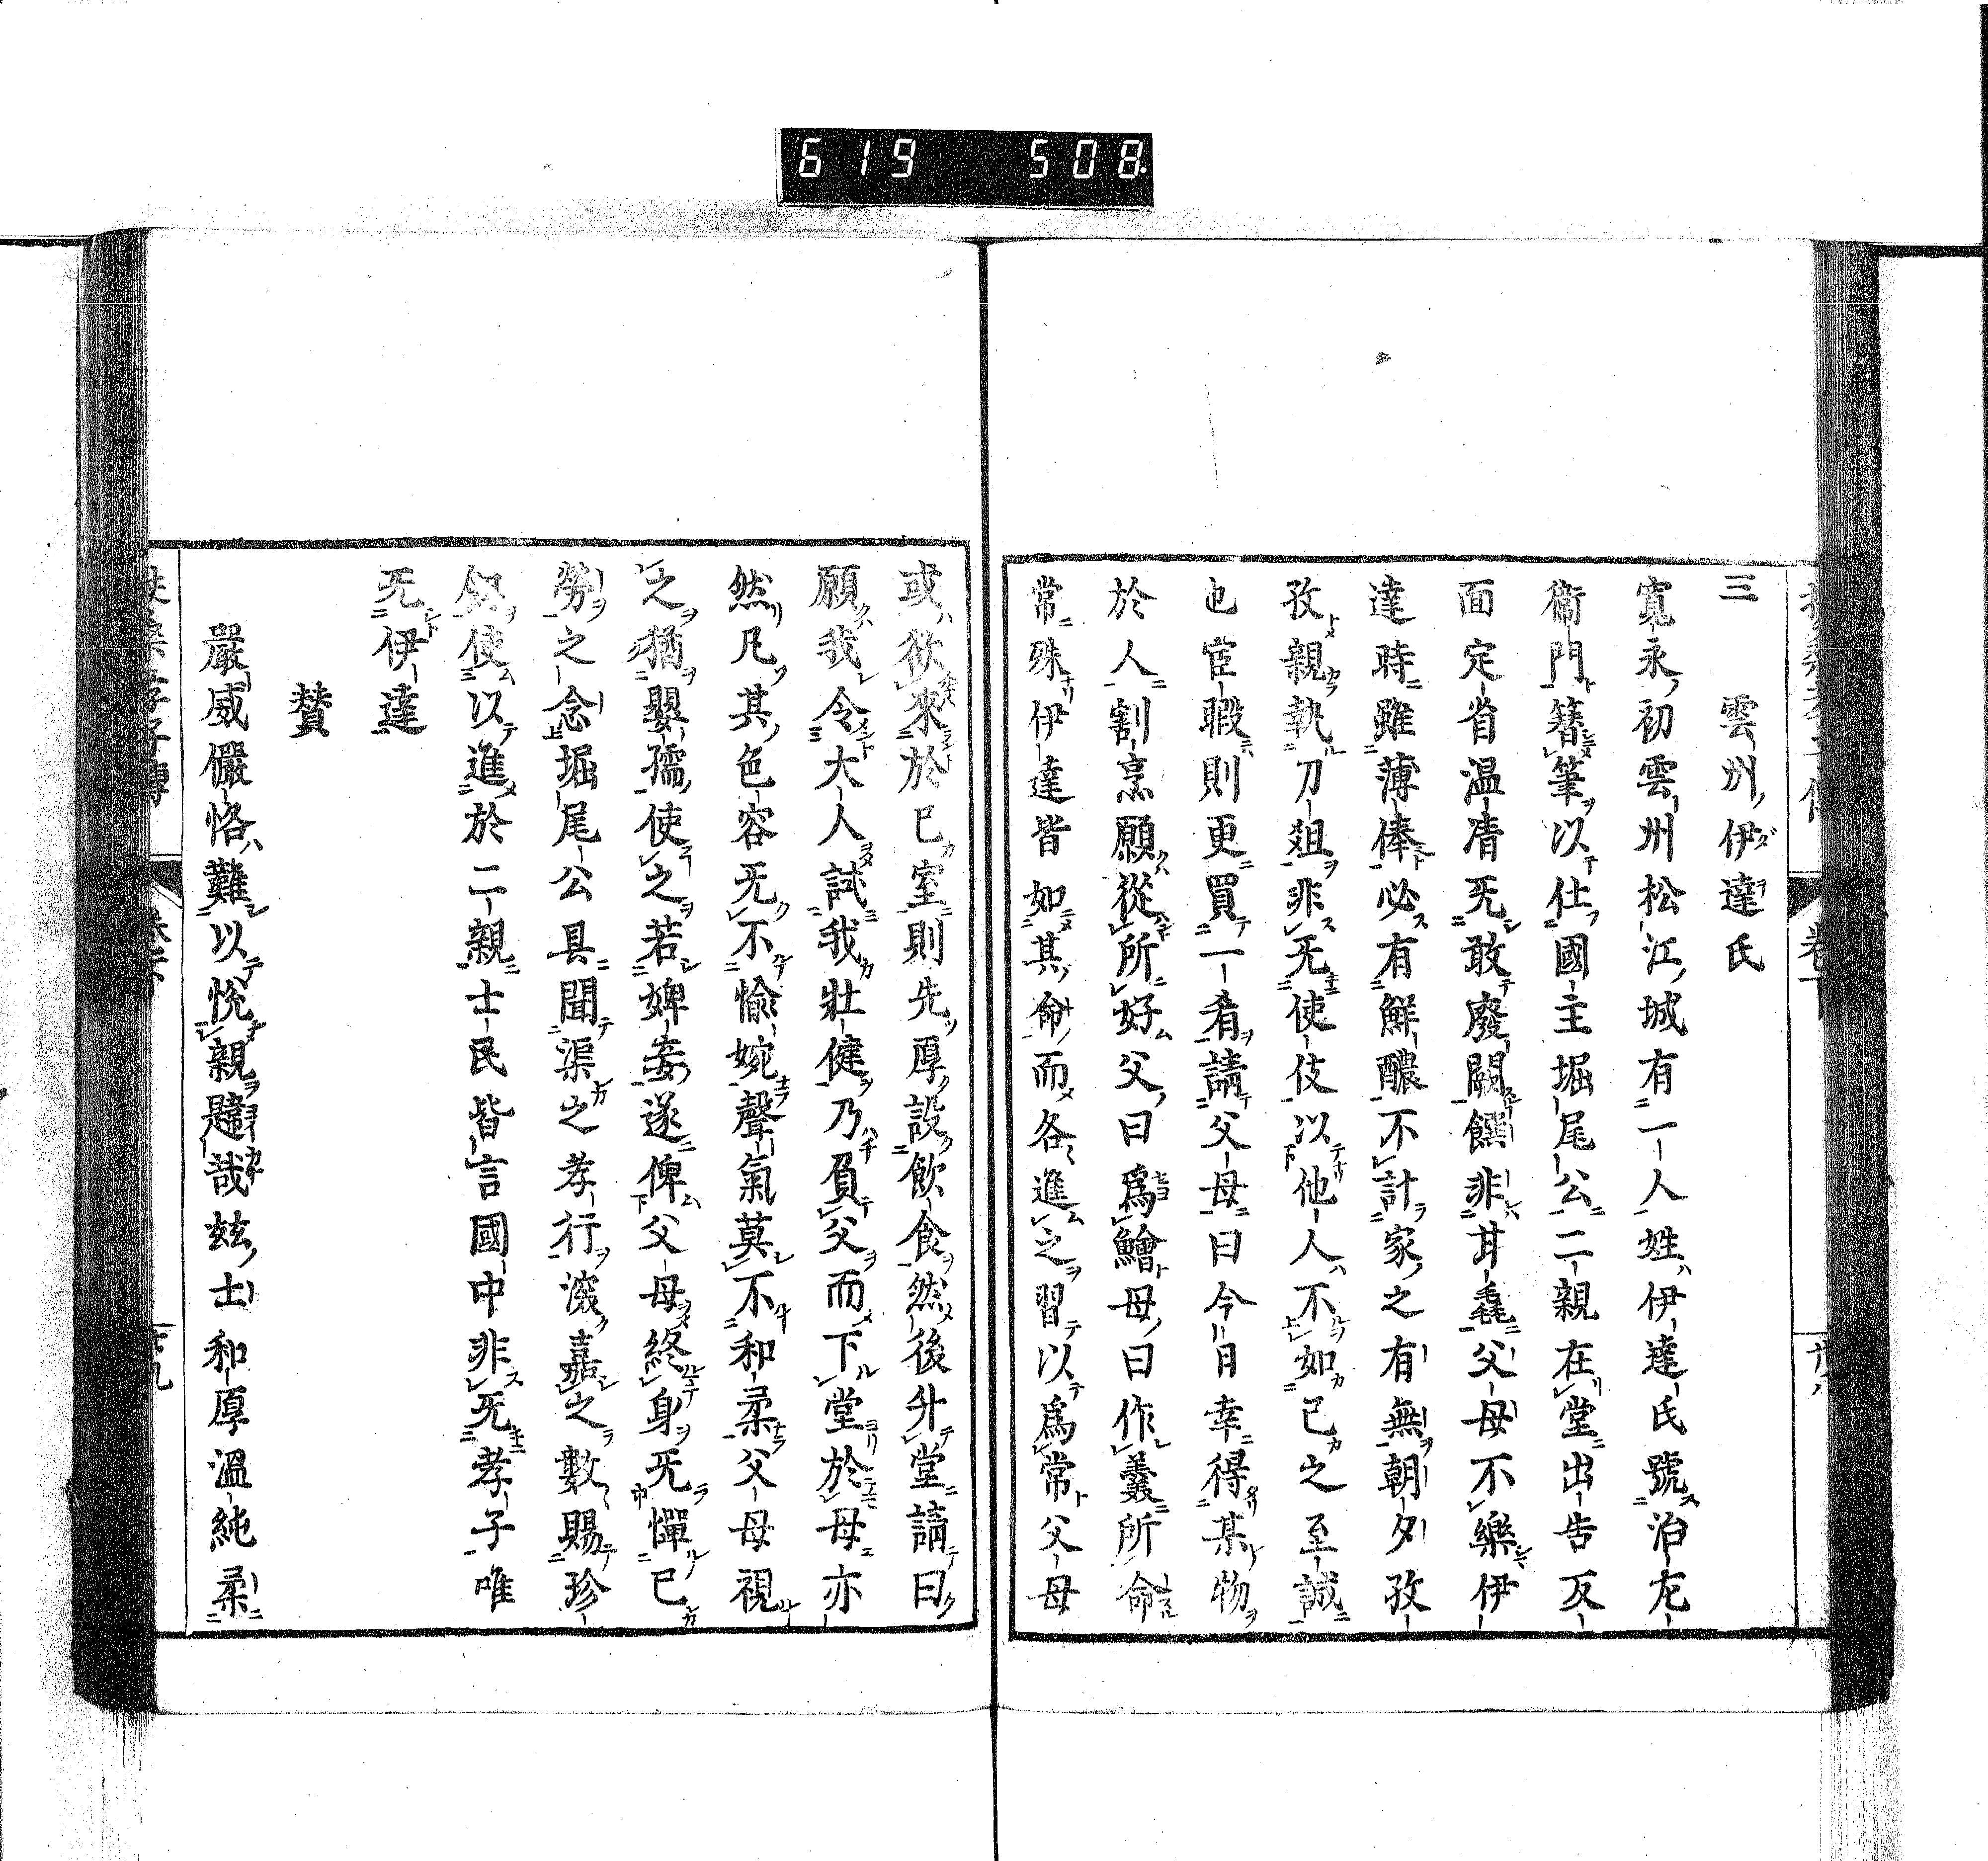 619 508
三 雲州伊達氏
寬永初雲州松江城有一人姓伊達氏號治左
衞門簪筆以仕國主堀尾公二親在堂出告反
面定省温凊无敢廢闕饌非甘毳父母不樂伊
達時雖薄俸必有鮮醲不計家之有無朝夕孜
孜親執刀俎非无使伎以他人不如已之至誠
也官暇則更買一肴請父母曰今日幸得某物
於人割烹願從所好父曰爲鱠母曰作羹所命
常殊伊達皆如其命而各進之習以爲常父母
或欲來於已室則先厚設飲食然後升堂請曰
願我令大人試我壯健乃負父而下堂於母亦
然凡其色容无不愉婉聲氣莫不和柔父母視
之猶嬰孺使之若婢妾遂俾父母終身无憚已
勞之念堀尾公具聞渠之孝行深嘉之數賜珍
使以進於二親士民皆言國中非无孝子唯
无伊達
贊
嚴威儼恪難以悅親韙哉玆士和厚溫純柔